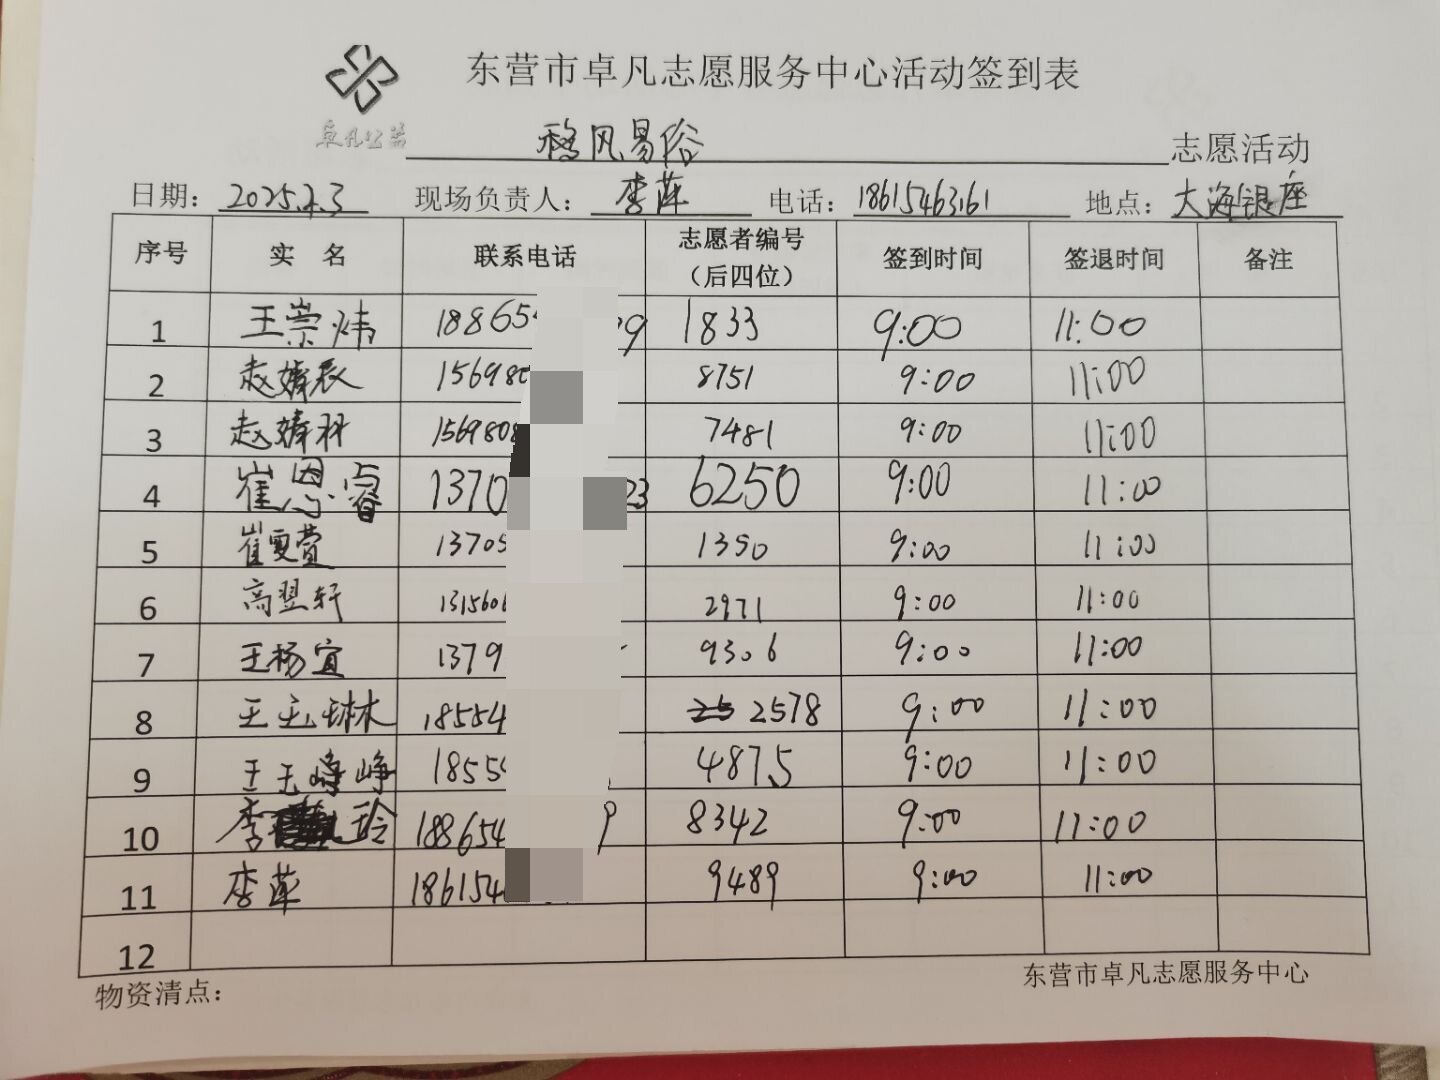 东营市卓凡志愿服务中心活动签到表
卓凡公益
移风易俗 志愿活动
日期: 2025.2.3 现场负责人: 李萍 电话: 18615463161 地点: 大海银座
序号 实 名 联系电话 志愿者编号(后四位) 签到时间 签退时间 备注
1 王崇炜 18865 9 1833 9:00 11:00
2 赵婧辰 156980 8751 9:00 11:00
3 赵婧祎 1569808 7481 9:00 11:00
4 崔恩睿 1370 23 6250 9:00 11:00
5 崔雯萱 13705 1350 9:00 11:00
6 高翌轩 131560 2971 9:00 11:00
7 王杨宜 1379 9306 9:00 11:00
8 王玉琳 18554 2578 9:00 11:00
9 王玉峥 1855 4875 9:00 11:00
10 李玲 188654 9 8342 9:00 11:00
11 李萍 186154 9489 9:00 11:00
12
物资清点: 东营市卓凡志愿服务中心